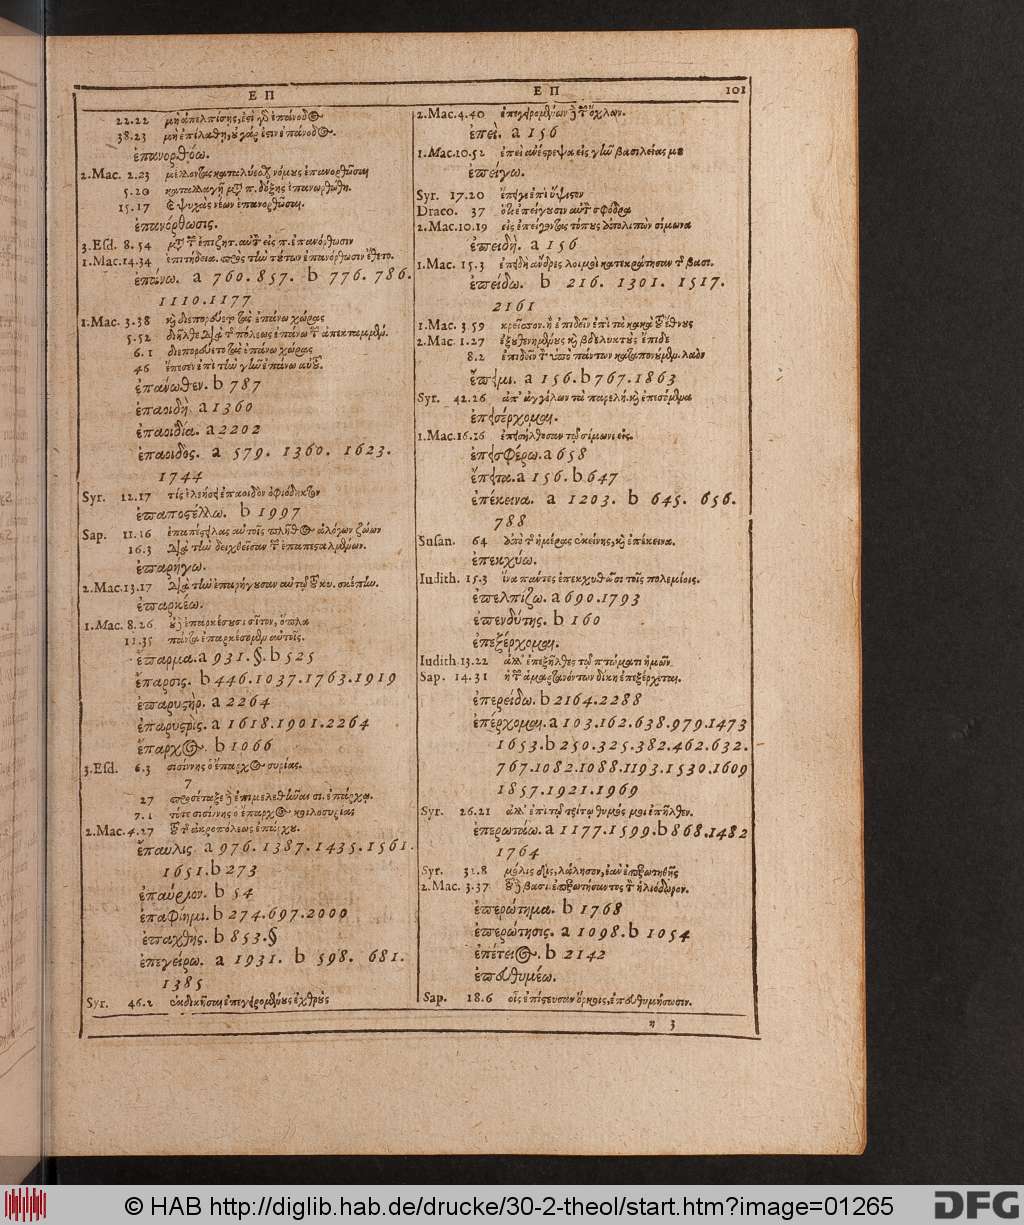 Ε Π
22.22 μὴ ἀπελπίσῃς, ἐστὶ γὰρ ἐπάνοδος
38.23 μὴ ἐπιλάθῃ, οὐ γάρ ἐστιν ἐπάνοδος.
ἐπανορθόω.
2.Mac. 2.23 μέλλοντας καταλύεσθαι νόμους ἐπανορθῶσαι
5.20 καταλλαγῇ μετὰ π. δόξης ἐπανωρθώθη.
15.17 ψυχὰς νέων ἐπανορθῶσαι.
ἐπανόρθωσις.
3.Esd. 8.54 μετὰ τ ἐπιζητ. αὐτ εἰς π. ἐπανόρθωσιν
1.Mac.14.34 ἐπιτήδεια πρὸς τὴν τούτων ἐπανόρθωσιν ἔθετο.
ἐπάνω. a 760. 857. b 776. 786.
1110. 1177
1.Mac. 3.38 καὶ διεπορεύετο τὰς ἐπάνω χώρας
5.52 διῆλθε διὰ τ πόλεως ἐπάνω τ ἀπεκταμμένων.
6.1 διεπορεύετο τὰς ἐπάνω χώρας
46 ἔπεσεν ἐπὶ τὴν γῆν ἐπάνω αὐτοῦ.
ἐπάνωθεν. b 787
ἐπαοιδή. a 1360
ἐπαοιδία. a 2202
ἐπαοιδὸς. a 579. 1360. 1623.
1744
Syr. 12.17 τίς ἐλεήσει ἐπαοιδὸν ὀφιόδηκτον
ἐπαποστέλλω. b 1997
Sap. 11.16 ἐπαπέστειλας αὐτοῖς πλῆθος ἀλόγων ζώων
16.3 διὰ τὴν δειχθεῖσαν τ ἐπαπεσταλμένων.
ἐπαρήγω.
2.Mac.13.17 διὰ τὴν ἐπαρήγουσαν αὐτῷ τοῦ κυ. σκέπην.
ἐπαρκέω.
1.Mac. 8.26 ἐπαρκέσουσι σῖτον, ὅπλα
11.35 πάντα ἐπαρκέσομεν αὐτοῖς.
ἔπαρμα. a 931. §. b 525
ἔπαρσις. b 446. 1037. 1763. 1919
ἐπαρυστήρ. a 2264
ἐπαρυστρὶς. a 1618. 1901. 2264
ἔπαρχος. b 1066
3.Esd. 6.3 σισίννης ὁ ἔπαρχος συρίας.
7
27 προσέταξε ἐπιμεληθῆναι σι. ἐπάρχῳ.
7.1 τότε σισίννης ὁ ἔπαρχος κοιλοσυρίας
2.Mac. 4.27 τοῦ τ ἀκροπόλεως ἐπάρχου.
ἔπαυλις a 976. 1387. 1435. 1561.
1651. b 273
ἐπαύριον. b 54
ἐπαφίημι. b 274. 697. 2000
ἐπαχθής. b 853. §
ἐπεγείρω. a 1931. b 598. 681.
1385
Syr. 46.2 ἐκδικῆσαι ἐπεγειρομένους ἐχθρούς
Ε Π
101
2.Mac. 4.40 ἐπεγειρομένων δὲ τ ὄχλων.
ἐπεὶ. a 156
1.Mac.10.52 ἐπεὶ ἀνέστρεψα εἰς γῆν βασιλείας με
ἐπείγω.
Syr. 17.20 ἐπὶ ὕψιστον
Draco. 37 ὅτι ἐπείγουσιν αὐτ σφόδρα
2.Mac.10.19 εἰς ἐπείγοντας τόπους ἀπολιπὼν σίμωνα
ἐπειδή. a 156
1.Mac. 15.3 ἐπειδὴ ἄνδρες λοιμοὶ κατεκράτησαν τ βασι.
ἐπεῖδω. b 216. 1301. 1517.
2161
1.Mac. 3.59 κρεῖσσον. ἢ ἐπιδεῖν ἐπὶ τὰ κακὰ τοῦ ἔθνους
2.Mac. 1.27 ἐξουθενημένους καὶ βδελυκτοὺς ἔπιδε
8.2 ἐπιδεῖν τ ὑπὸ πάντων καταπονούμεν. λαὸν
ἔπειμι. a 156. b 767. 1863
Syr. 42.26 ἀπ' ἀγγέλων τὰ παρελή. καὶ ἐπεσόμενα
ἐπεισέρχομαι.
1.Mac.16.16 ἐπεισῆλθοσαν τῷ σίμωνι εἰς.
ἐπεισφέρω. a 658
ἔπειτα. a 156. b 647
ἐπέκεινα. a 1203. b 645. 656.
788
Susan. 64 ἀπὸ τ ἡμέρας ἐκείνης, καὶ ἐπέκεινα.
ἐπεκχύω.
Iudith. 15.3 ἵνα πάντες ἐπεκχυθῶσι τοῖς πολεμίοις.
ἐπελπίζω. a 690. 1793
ἐπενδύτης. b 160
ἐπεξέρχομαι.
Iudith. 13.22 ἀλλ' ἐπεξῆλθες τῷ πτώματι ἡμῶν
Sap. 14.31 ἡ τ ἁμαρτανόντων δίκη ἐπεξέρχεται.
ἐπερείδω. b 2164. 2288
ἐπέρχομαι. a 103. 162. 638. 979. 1473
1653. b 250. 325. 382. 462. 632.
767. 1082. 1088. 1193. 1530. 1609
1857. 1921. 1969
Syr. 26.21 ἀλλ' ἐπὶ τῷ τρίτῳ θυμός μοι ἐπῆλθεν.
ἐπερωτάω. a 1177. 1599. b 868. 1482
1764
Syr. 32.8 μόλις δὶς, λάλησον, ἐὰν ἐπερωτηθῇς
2.Mac. 3.37 τοῦ δὲ βασι. ἐπερωτήσαντος τ ἡλιόδωρον.
ἐπερώτημα. b 1768
ἐπερώτησις. a 1098. b 1054
ἐπέτειος. b 2142
ἐπευθυμέω.
Sap. 18.6 οἷς ἐπίστευσαν ὅρκοις, ἐπευθυμήσωσιν.
η 3
© HAB http://diglib.hab.de/drucke/30-2-theol/start.htm?image=01265
DFG